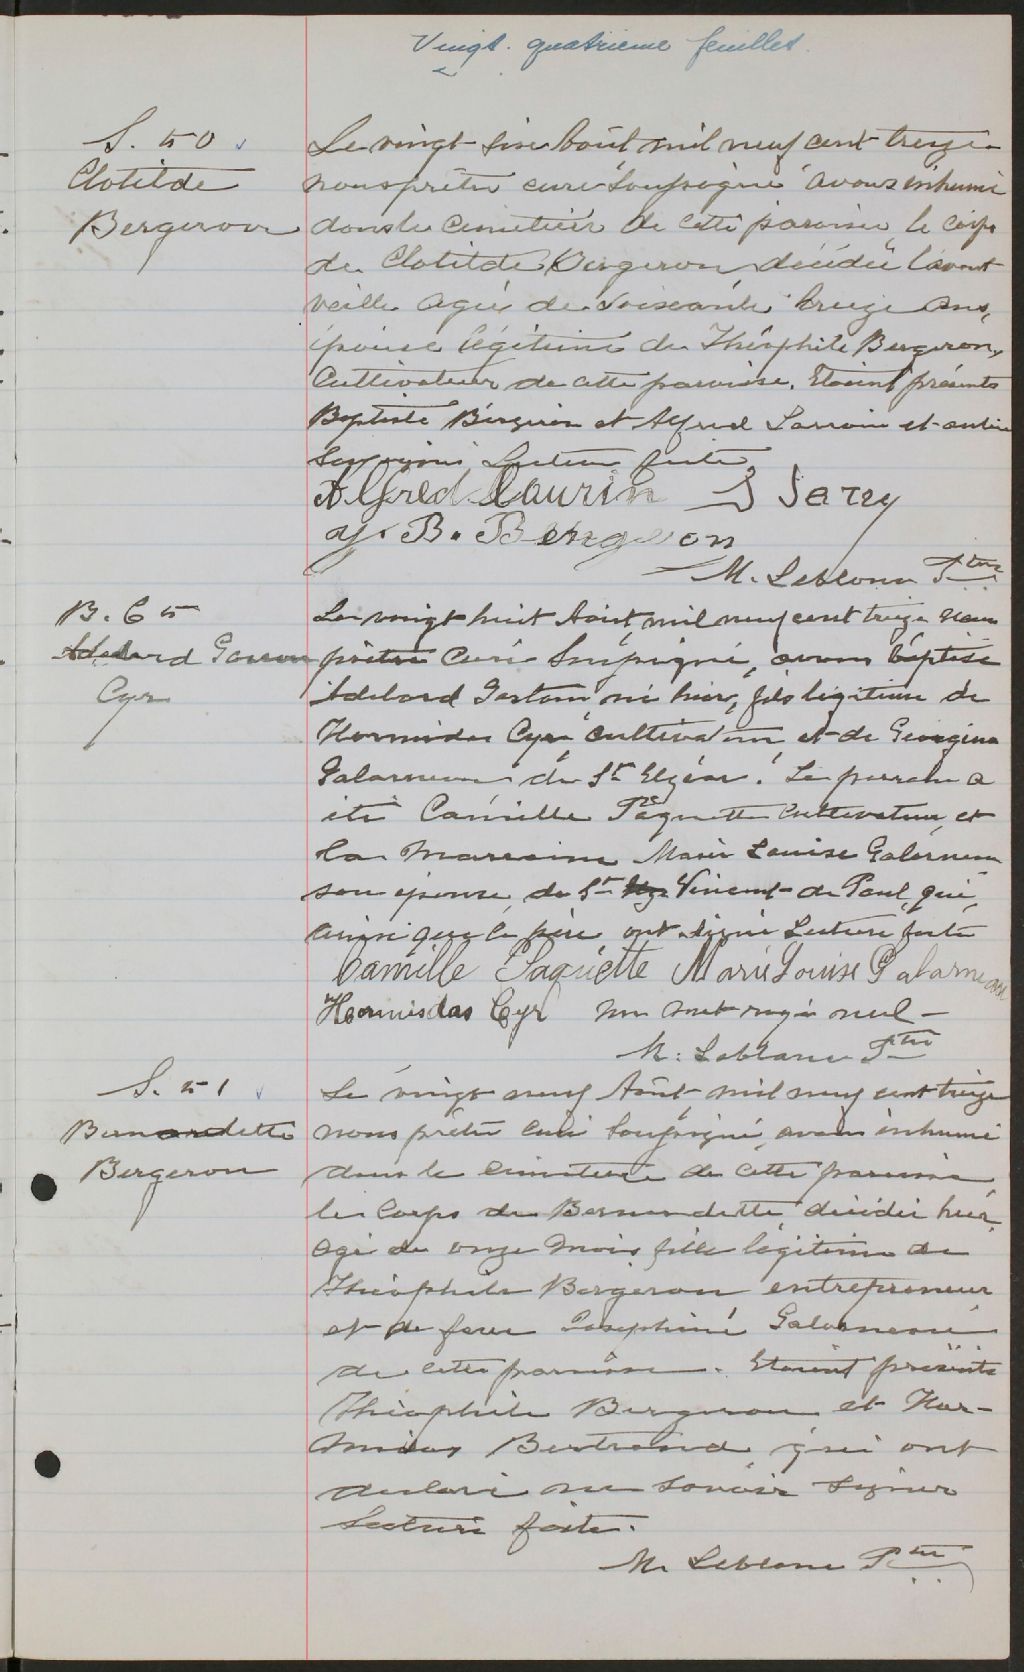 Vingt-quatrieme feuillet.
S. 50
Clotilde
Bergeron
Le vingt six Août mil neuf cent treize
nous prêtre curé soussigné avons inhumé
dans le cimetière de cette paroisse, le corps
de Clotilde Bergeron décédée l'avant
veille agée de soixante treize ans,
épouse légitime de Théophile Bergeron,
Cultivateur de cette paroisse. Etaient présents
Baptiste Bergeron et Alfred Laurin et autres
soussignés Lecture faite
Alfred Laurin J Jarry
J. B. Bergeron
M. Leblanc Ptre
B. 65
Adelard Gaston
Cyr
Le vingt huit Août mil neuf cent treize nous
prêtre Curé Soussigné, avons baptisé
Adelard Gaston né hier, fils légitime de
Hormidas Cyr, cultivateur et de Georgina
Galarneau de St Elzéar. Le parrain a
été Camille Paquette Cultivateur, et
la marraine Marie Louise Galarneau
son épouse, de St Vincent de Paul, qui,
ainsi que le père ont signé Lecture faite
Camille Paquette Marie Louise Galarneau
Hormisdas Cyr un mot rayé nul -
M. Leblanc Ptre
S. 51
Bernardette
Bergeron
Le vingt neuf Août mil neuf cent treize
nous prêtre curé soussigné, avons inhumé
dans le cimetière de cette paroisse,
le corps de Bernardette, décédée hier,
agé de onze mois fille légitime de
Théophile Bergeron entrepreneur
et de feue Josephine Galarneau
de cette paroisse. Etaient présents
Théophile Bergeron et Hor-
midas Bertrand qui ont
déclaré ne savoir signer
Lecture faite.
M. Leblanc Ptre